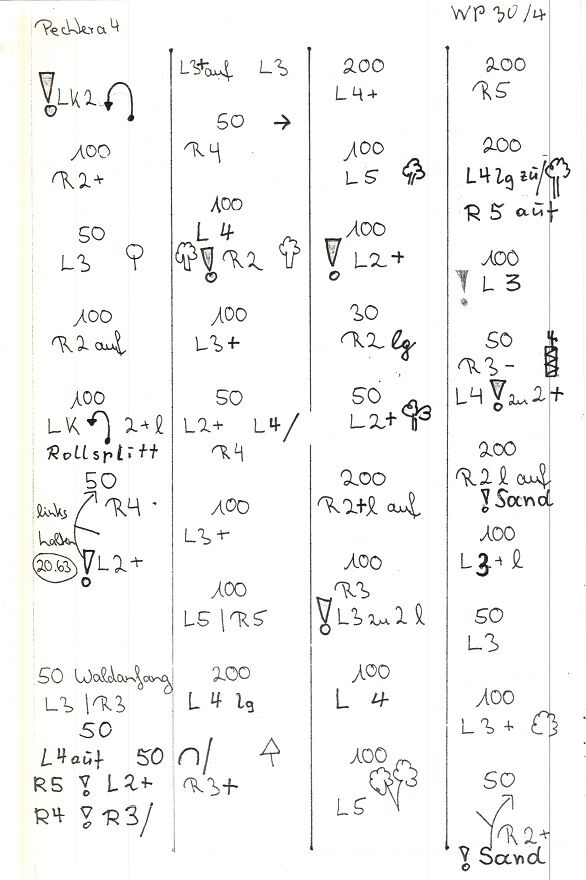 Pechtera 4
WP 30/4
! LK2
100
R2+
50
L3
100
R2 auf
100
LK 2+l
Rollsplitt
50
R4
links
halten
20.63
! L2+
50 Waldanfang
L3 | R3
50
L4 auf 50
R5 ! L2+
R4 ! R3/
L3+ auf L3
50 →
R4
100
L4
! R2
100
L3+
50
L2+ L4/
R4
100
L3+
100
L5 | R5
200
L4 lg
∩/
R3+
200
L4+
100
L5
100
! L2+
30
R2 lg
50
L2+
200
R2+l auf
100
R3
! L3 zu 2 l
100
L 4
100
L5
200
R5
200
L4 lg zu/
R5 auf
100
! L 3
50
R3-
L4 ! zu 2+
200
R2 l auf
! Sand
100
L3+ l
50
L3
100
L3+
50
R2+
! Sand